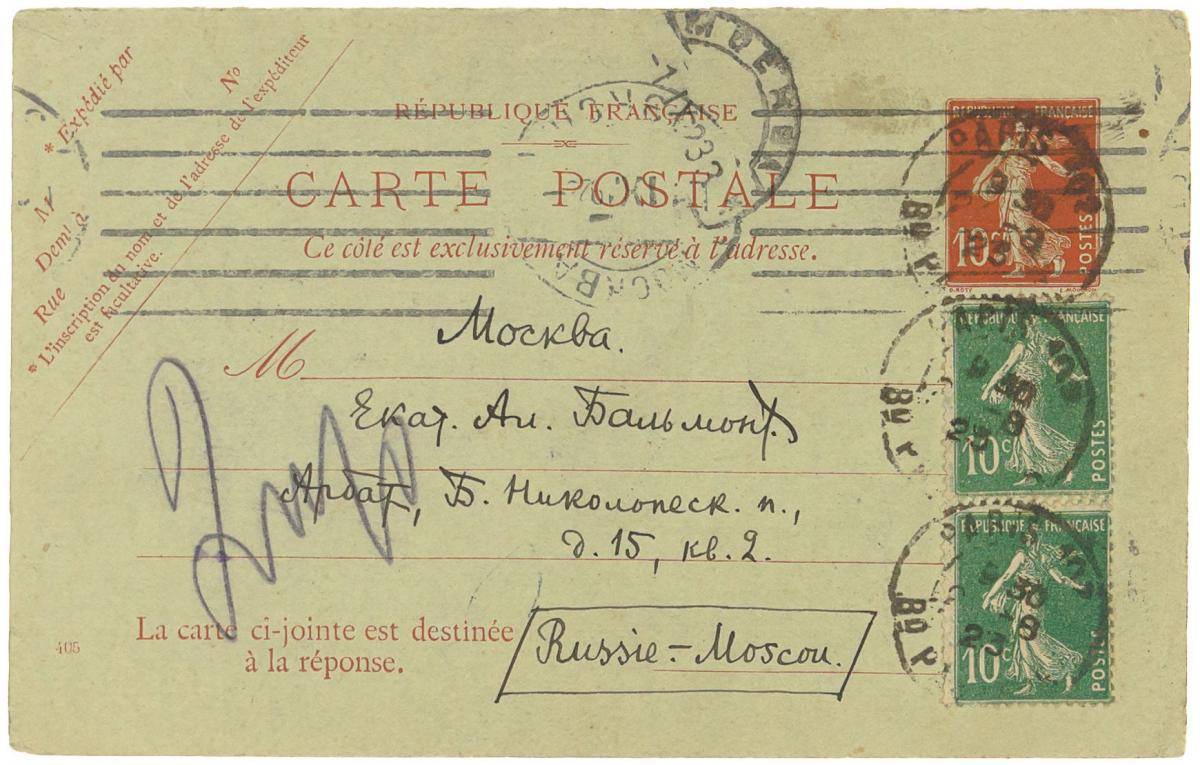 * Expédié par
Nº
Rue
Demt à
* L'inscription du nom et de l'adresse de l'expéditeur
est facultative.
RÉPUBLIQUE FRANÇAISE
CARTE POSTALE
Ce côté est exclusivement réservé à l'adresse.
RÉPUBLIQUE FRANÇAISE
10c
POSTES
O. ROTY
E. MOUCHON
PARIS
Москва.
M
Екат. Ал. Бальмонт
Арбат, Б. Николопеск. п.,
д. 15, кв. 2.
La carte ci-jointe est destinée
à la réponse.
405
Russie – Moscou.
REPUBLIQUE FRANÇAISE
10c
POSTES
PARIS
REPUBLIQUE FRANÇAISE
10c
POSTES
PARIS